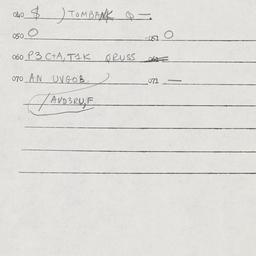 040 $ ) TOMBANK Q —
050 O 051 O
060 P3 C+A, T1K QRUSS
070 AN UVGOB 071 —
/AVD3RU,F